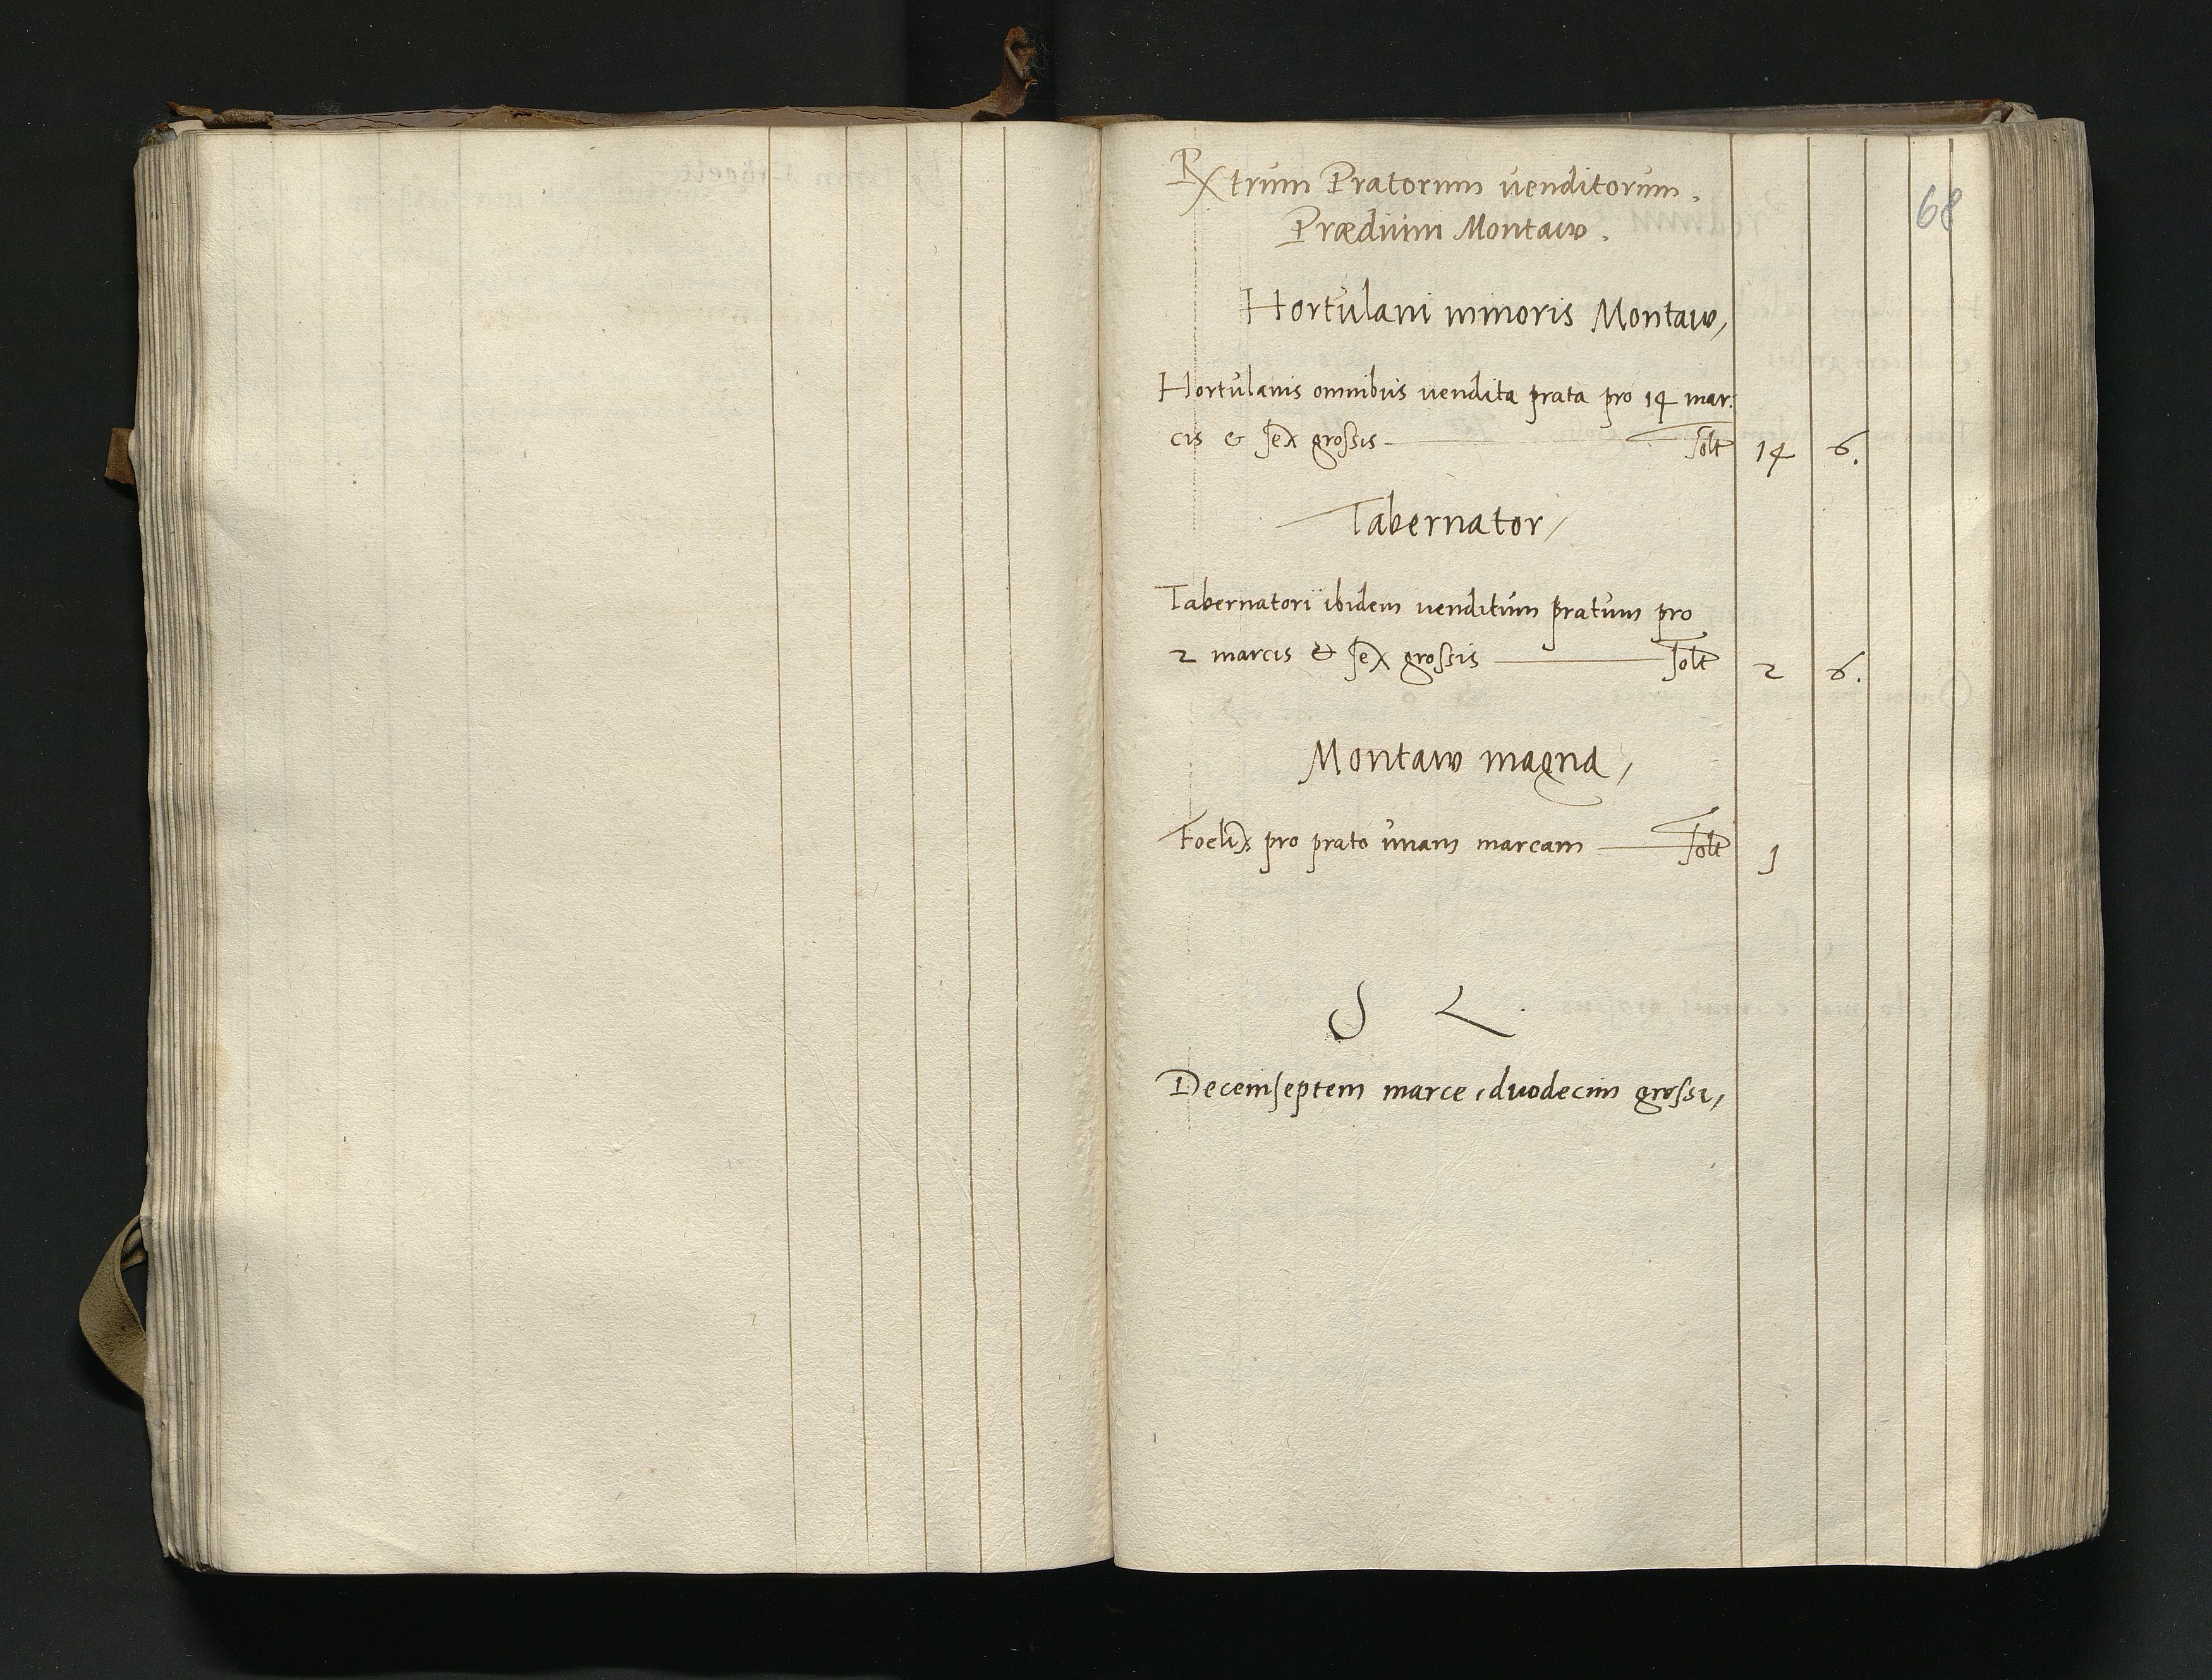 68
Rxtrum Pratorum venditorum.
Prædium Montaw.
Hortulani minoris Montaw,
Hortulanis omnibus vendita prata pro 14 mar:
cis & sex grossis — solt 14 6.
Tabernator,
Tabernatori ibidem venditum pratum pro
2 marcis & sex grossis — solt 2 6.
Montaw magna,
Foelix pro prato unam marcam — solt 1
S L.
Decemseptem marce, duodecim grossi,